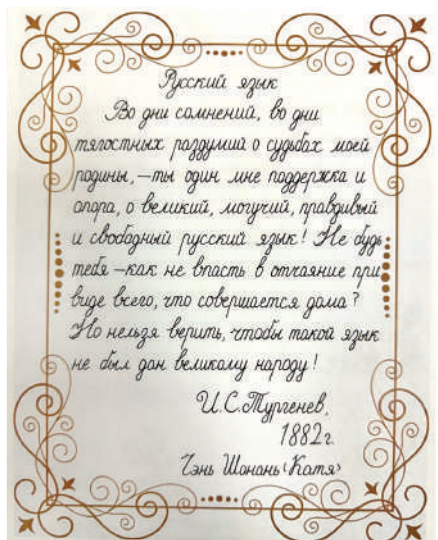 Русский язык
Во дни сомнений, во дни
тягостных раздумий о судьбах моей
родины, – ты один мне поддержка и
опора, о великий, могучий, правдивый
и свободный русский язык! Не будь
тебя – как не впасть в отчаяние при
виде всего, что совершается дома?
Но нельзя верить, чтобы такой язык
не был дан великому народу!
И.С.Тургенев,
1882г.
Чэнь Шонань (Катя)